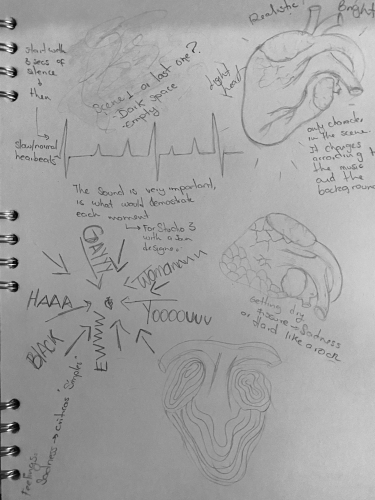 Realistic!
Bright
start with
3 secs of
silence
then
slow/normal
heartbeats
Scene 1 or last one?
- Dark space
- Empty
light
head
only character
in the scene.
It changes
according to
the music
and the
background
The sound is very important,
is what would demostrate
each moment
For Studio 3
with a
designer
GAYY
HAAA
YOOOOUUU
BLACK
EWWW
Getting dry
- Sadness
or Hard like a rock
Feelings:
Sadness
"Simple"